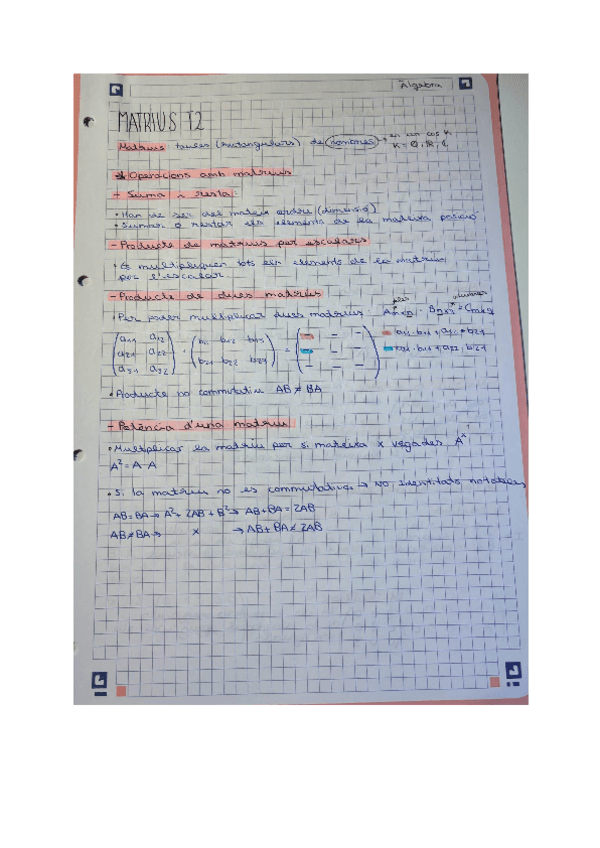 Àlgebra
MATRIUS T2
Matrius taules (rectangulars) de nombres → en un cos K
K = Q, R, C
* Operacions amb matrius
- Suma i resta:
• Han de ser del mateix ordre (dimensió)
• Sumar o restar els elements de la mateixa posició
- Producte de matrius per escalars
• Es multipliquen tots els elements de la matriu
per l'escalar.
- Producte de dues matrius
• Per poder multiplicar dues matrius: A m×n · B n×q = C m×q
files columnes
(a11 a12 a21 a22 a31 a32) · (b11 b12 b13 b21 b22 b23) = (- - - - - - - - -)
• Producte no commutatiu AB ≠ BA
- Potència d'una matriu
• Multiplicar la matriu per si mateixa x vegades A^x
A² = A·A
• Si la matriu no és commutativa → NO identitats notables
AB=BA → A² + 2AB + B² → AB+BA = 2AB
AB≠BA → x → AB+BA ≠ 2AB